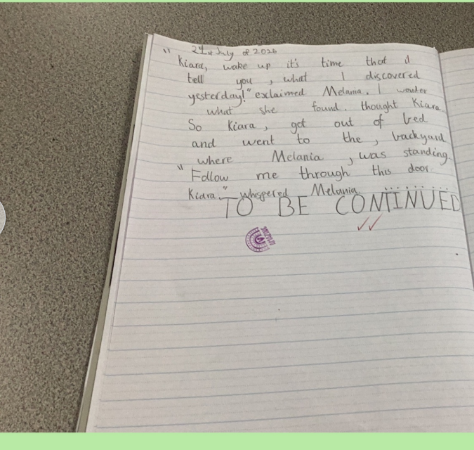 24th July @ 2026
"Kiara, wake up it's time that I
tell you, what I discovered
yesterday!" exclaimed Melania. I wonder
what she found thought Kiara
So Kiara, get out of bed
and went to the, backyard
where Melania, was standing
"Follow me through this door
Kiara." whispered Melania.
TO BE CONTINUED